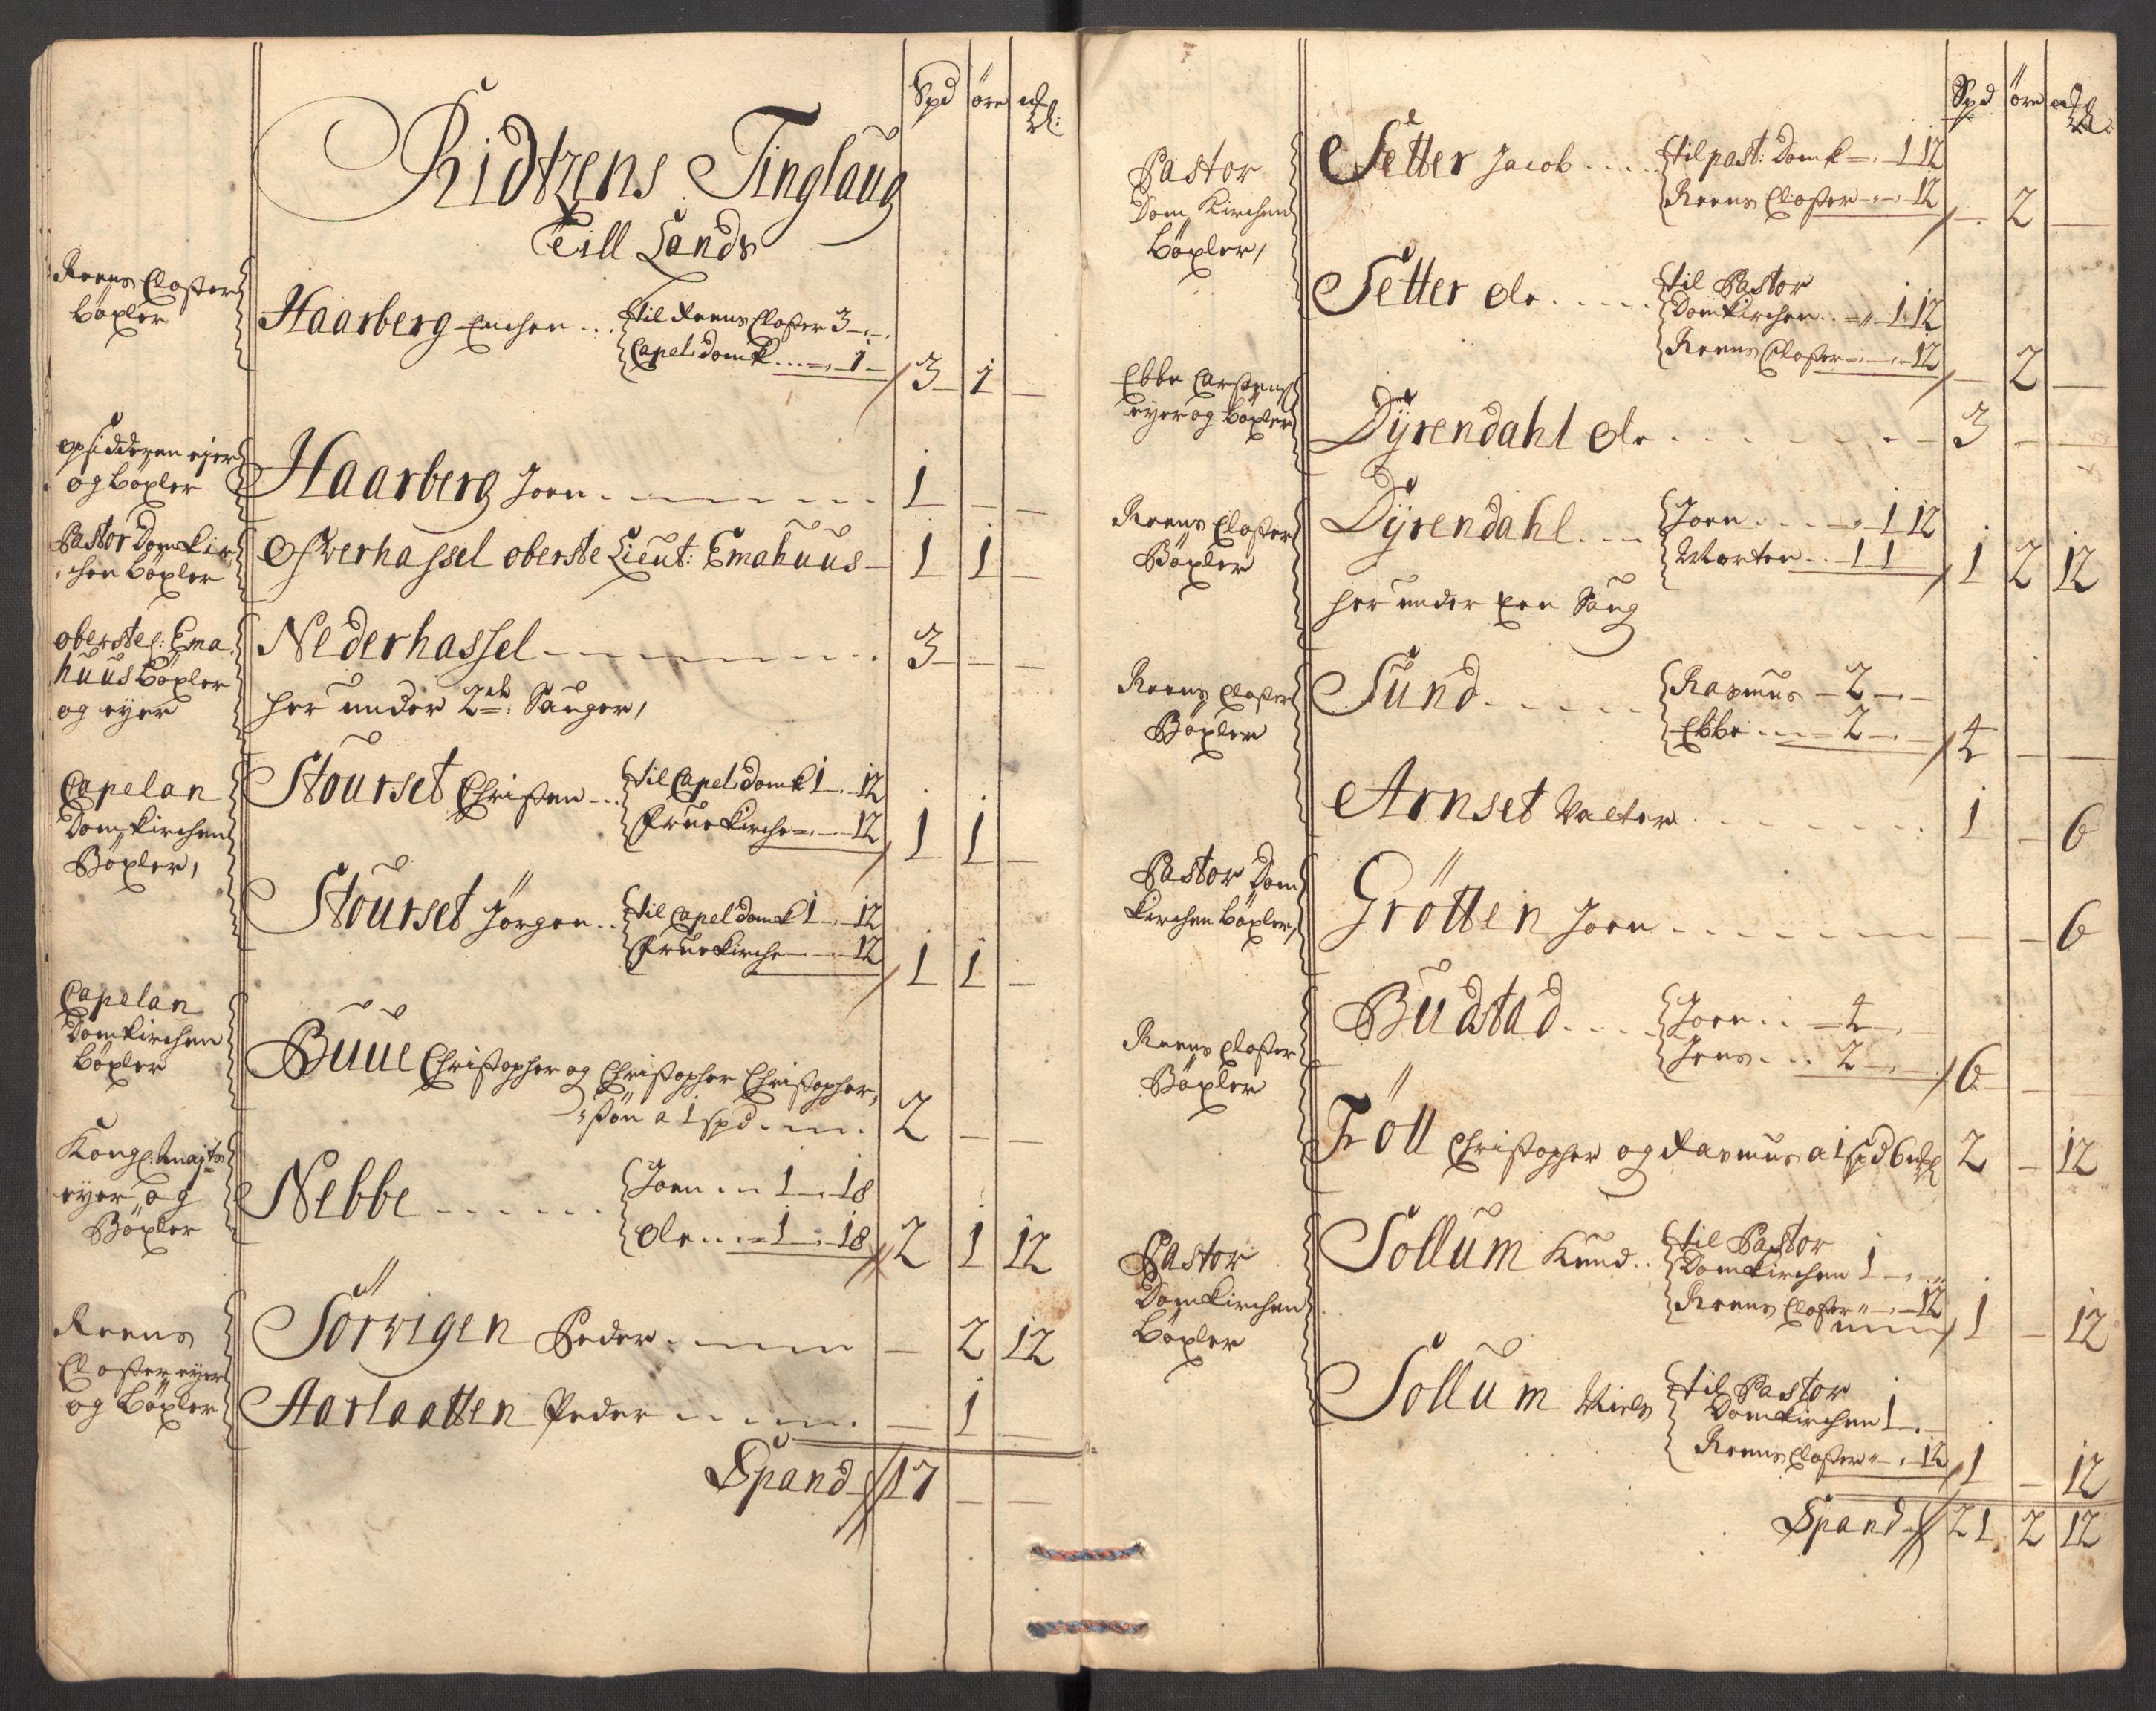 Spd öre mkl:
Ridtzens Tinglaug
Till Lands
Reens Closter
böxler
Haarberg Enchen . . . til Reens Closter 3 – „ –
Capel: domk . . . – „ – 1 –
3 1 –
opsidderen ejer
og böxler
Haarberg Joen . – – – – – – – 1 – –
Pastor Domkir-
chen böxler
Ofverhassel oberste Lieut: Emahuus – 1 1 –
oberstel: Ema
huus Böxler
og eyer
Nederhassel – – – – – – – 3 – –
her under 2de Sauger,
Capelan
Domkirchen
Böxler,
Stourset Christen . . . til Capel: domk 1 „ 12
Fruekirche – „ – 12
1 1 –
Stourset Jörgen . . til Capel domk 1 – „ 12
Fruekirchen – „ – 12
1 1 –
Capelan
Domkirchen
böxler
Buue Christopher og Christopher Christopher,
„ sön a 1 spd . – – . 2 – –
Kongl: mayts
eyer og
Böxler
Nebbe . . . . . . Joen . . – 1 „ 18
Ole . . . – 1 „ 18
2 1 12
Reens
Closter eyer
og Böxler
Sörvigen Peder . – – – – 2 12
Aarlaatten Peder . . – – – – 1 –
Spand 17 – –
Spd öre mkl
Pastor
Dom Kirchen
böxler,
Setter Jacob . . . . til past: Domk – „ 1 12
Reens Closter – „ – 12
– 2 –
Setter Ole . . . . . til Pastor
Domkirchen . . – „ 1 12
Reens Closter – „ – 12
– 2 –
Ebbe Carstens
eyer og böxler
Dÿrendahl Ole . . . . . . . – 3 – –
Reens Closter
Böxler
Dÿrendahl . . . Joen . . . . – „ 1 12
Morten . . 1 1
1 2 12
her under een Saug
Reens Closter
Böxler
Sund . . . . . Rasmus – 2 – „ –
Ebbe . . . – 2 – „
4 – –
Arnset Valter . . . . . . . 1 – 6
Pastor Dom
kirchen böxler,
Grötten Joen . . . . . . . – – 6
Reens Closter
Böxler
Budstad . . . . Joen . . – 4 – „
Jens . . . 2 – „ –
6 – –
Föll Christopher og Rasmus a 1 spd 6 mkl 2 – 12
Pastor
Domkirchen
böxler
Sollum Knud . . til Pastor
Domkirchen 1 – „ –
Reens Closter „ – „ – 12
1 – 12
Sollum Niels til Pastor
Domkirchen 1 „ –
Reens Closter „ – „ 12
1 – 12
Spand 21 2 12